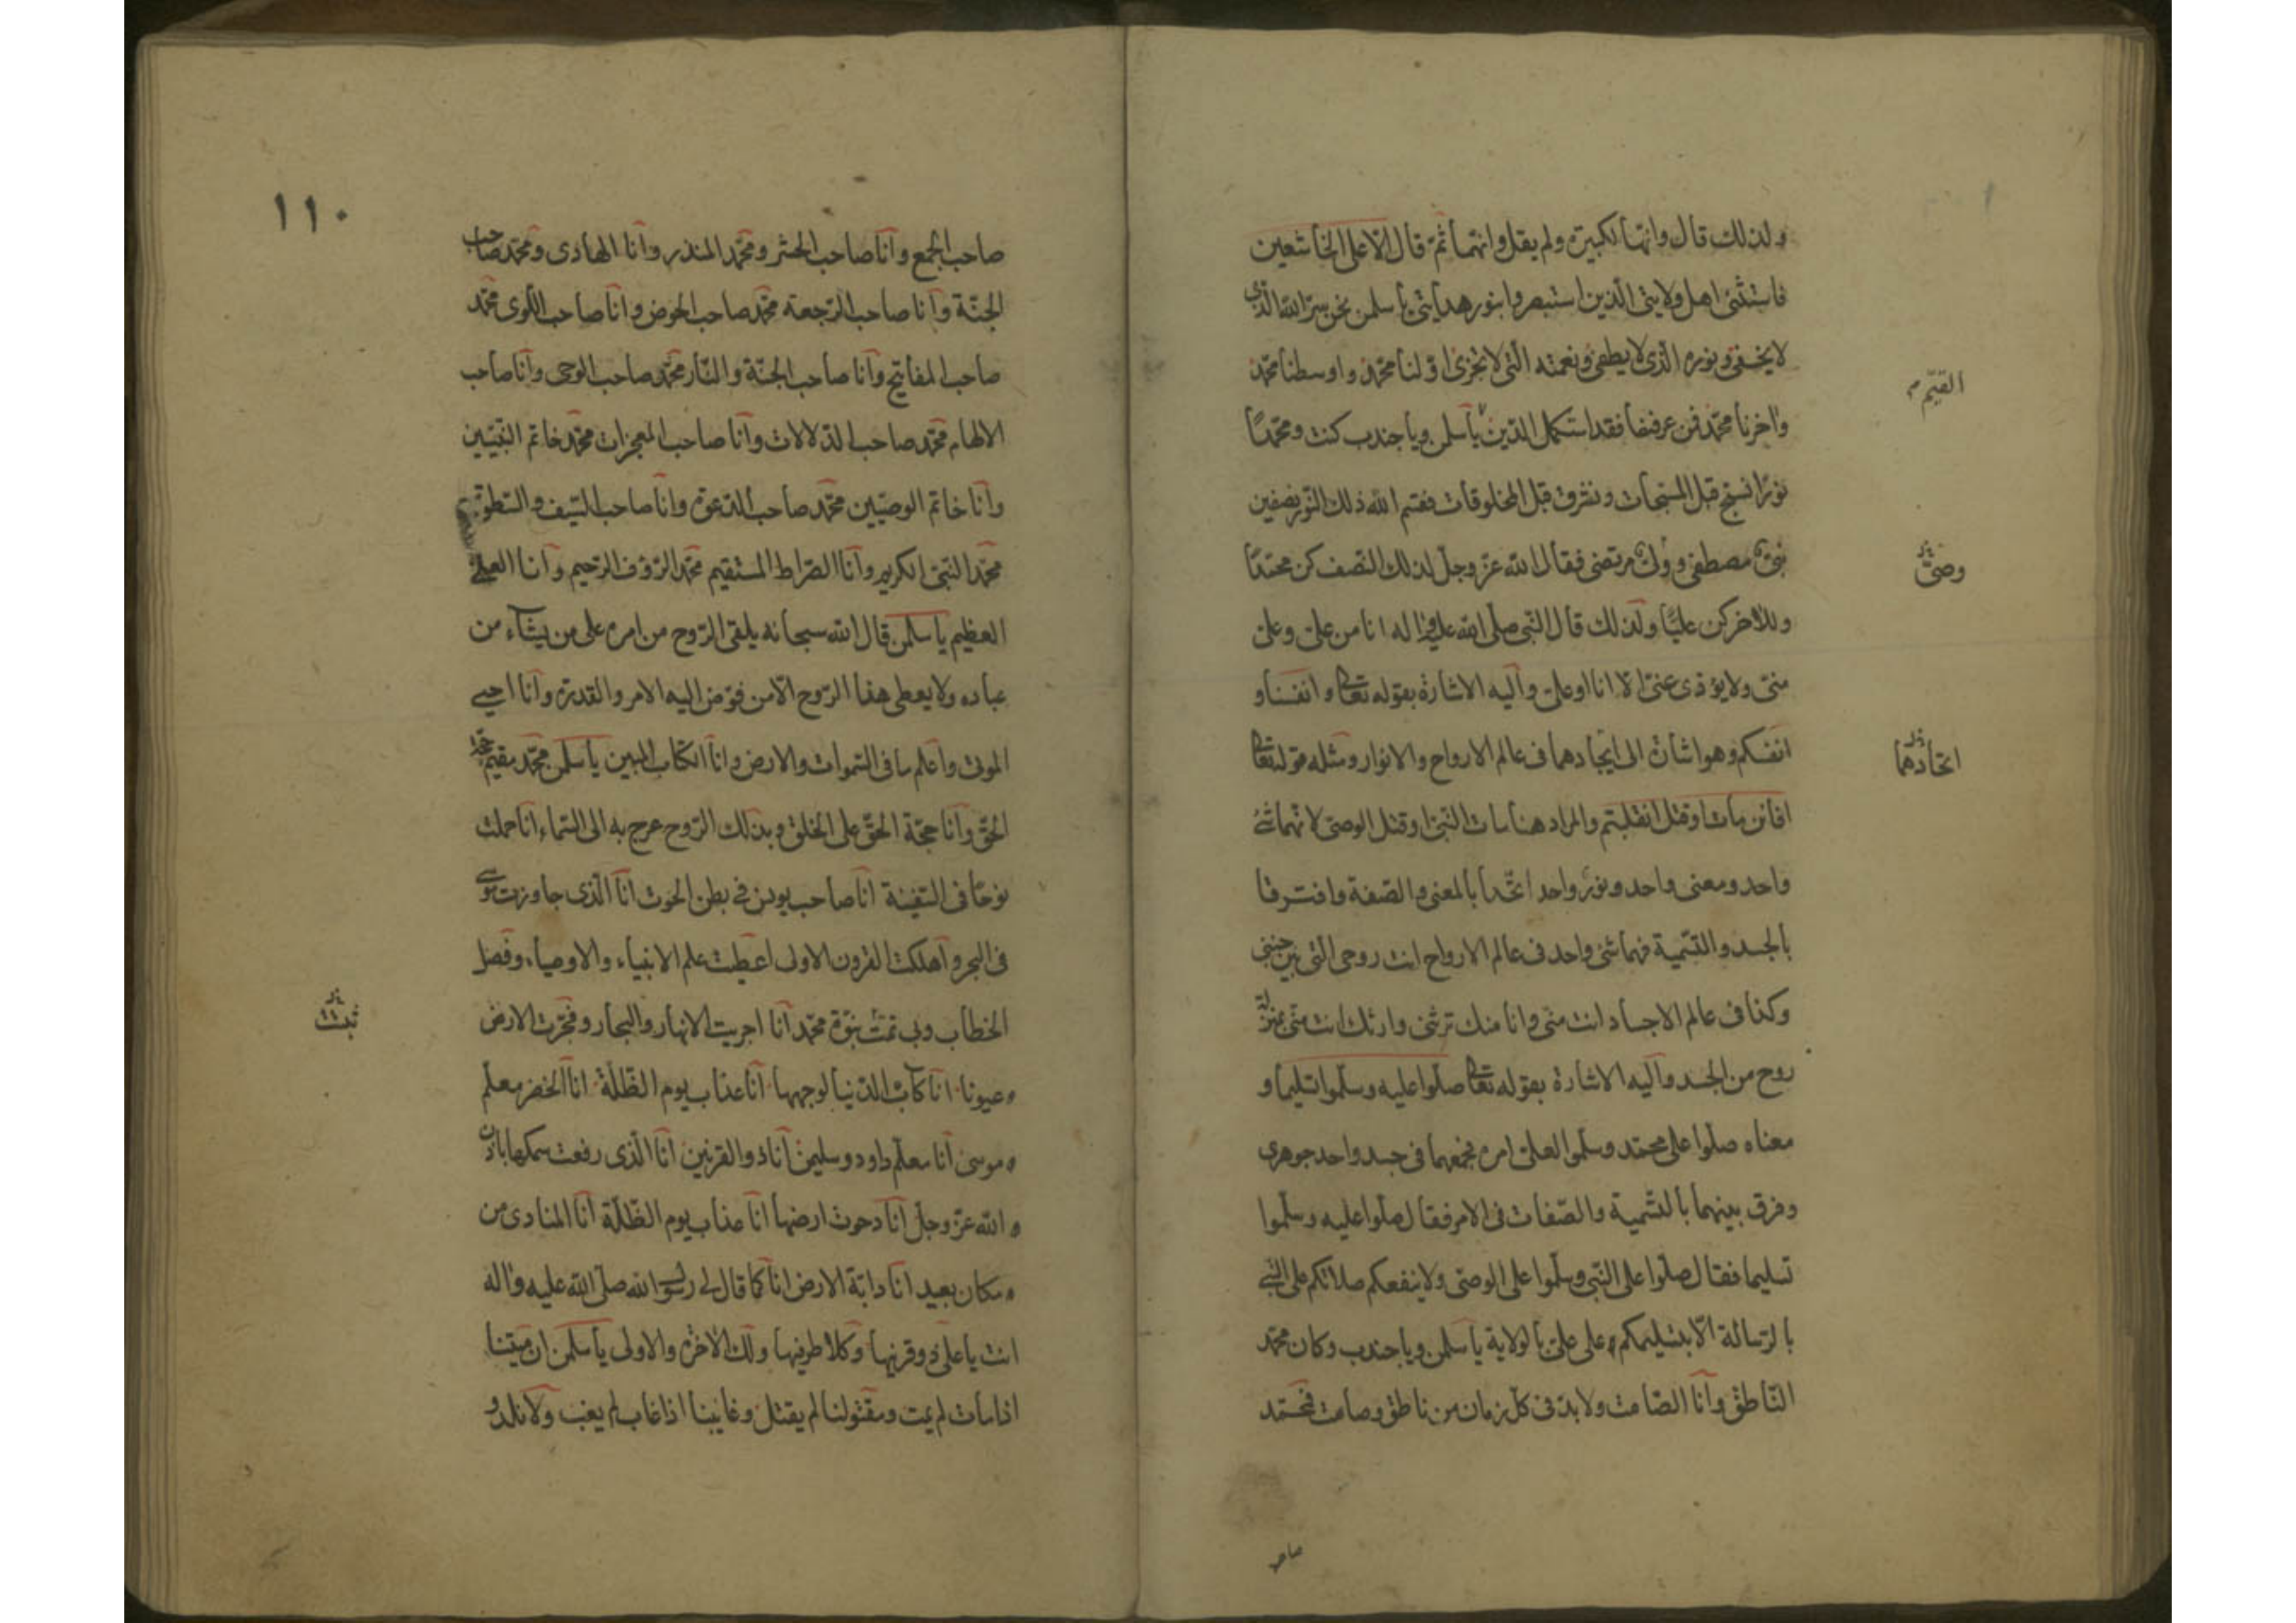 ولذلك قال وانها لكبيرة ولم يقل وانهما ثم قال الا على الخاشعين
فاستثنى اهل ولايتى الذين استبصروا بنور هدايتى يا سلمن نحن سر الله الذى
لا يخفى ونوره الذى لا يطفى ونعمته التى لا تجزى اولنا محمد واوسطنا محمد
واخرنا محمد فمن عرفنا فقد استكمل الدين يا سلمن ويا جندب كنت ومحمدًا
القيّم
نورًا نسبح قبل المسبحات ونشرق قبل المخلوقات فقسم الله ذلك النور نصفين
نبىّ مصطفى وولىّ مرتضى فقال الله عز وجل لذلك النصف كن محمدًا
وصىّ
وللاخر كن عليًّا ولذلك قال النبى صلى الله عليه واله انا من علىّ وعلىّ
منى ولا يؤدى عنى الا انا او علىّ واليه الاشارة بقوله تعالى وانفسنا و
انفسكم وهو اشارة الى ايجادهما فى عالم الارواح والانوار ومثله قوله تعالى
اتحادهما
افائن مات او قتل انقلبتم والمراد هنا مات النبى او قتل الوصى لانهما شئ
واحد ومعنى واحد ونور واحد اتحدا بالمعنى والصفة وافترقا
بالجسد والتسمية فهما شئ واحد فى عالم الارواح انت روحى التى بين جنبى
وكذا فى عالم الاجساد انت منى وانا منك ترثنى وارثك انت منى بمنزلة
روح من الجسد واليه الاشارة بقوله تعالى صلوا عليه وسلموا تسليما و
معناه صلوا على محمد وسلموا لعلىّ امره فجمعهما فى جسد واحد جوهرى
وفرق بينهما بالتسمية والصفات فى الامر فقال صلوا عليه وسلموا
تسليما فقال صلوا على النبى وسلموا على الوصى ولا ينفعكم صلاتكم على النبى
بالرسالة الا بتسليمكم على علىّ بالولاية يا سلمن ويا جندب وكان محمد
الناطق وانا الصامت ولا بد فى كل زمان من ناطق وصامت فمحمد
صاحب
١١٠
صاحب الجمع وانا صاحب الحشر ومحمد المنذر وانا الهادى ومحمد صاحب
الجنة وانا صاحب الرجعة محمد صاحب الحوض وانا صاحب اللوى محمد
صاحب المفاتيح وانا صاحب الجنة والنار محمد صاحب الوحى وانا صاحب
الالهام محمد صاحب الدلالات وانا صاحب المعجزات محمد خاتم النبيين
وانا خاتم الوصيين محمد صاحب الدعوة وانا صاحب السيف والسطوة
محمد النبى الكريم وانا الصراط المستقيم محمد الرؤف الرحيم وانا العلى
العظيم يا سلمن قال الله سبحانه يلقى الروح من امره على من يشاء من
عباده ولا يعطى هذا الروح الا من فوض اليه الامر والقدرة وانا احيى
الموتى واعلم ما فى السموات والارض وانا الكتاب المبين يا سلمن محمد مقيم حجة
الحق وانا حجة الحق على الخلق وبذلك الروح عرج به الى السماء انا حملت
نوحًا فى السفينة انا صاحب يونس فى بطن الحوت انا الذى جاوزت موسى
فى البحر واهلكت القرون الاولى اعطيت علم الانبياء والاوصياء وفصل
الخطاب وبى تمت نبوة محمد انا اجريت الانهار والبحار وفجرت الارض
ثبتت
عيونا انا كاب الدنيا لوجهها انا عذاب يوم الظلة انا الخضر معلم
موسى انا معلم داود وسليمن انا ذو القرنين انا الذى رفعت سمكها باذن
الله عز وجل انا دحوت ارضها انا عذاب يوم الظلة انا المنادى من
مكان بعيد انا دابة الارض انا كما قال لى رسول الله صلى الله عليه واله
انت يا على ذو قرنيها وكلا طرفيها ولك الاخرة والاولى يا سلمن ان ميتنا
اذا مات لم يمت ومقتولنا لم يقتل وغائبنا اذا غاب لم يغب ولا نلد و